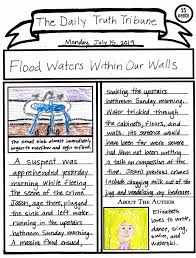 The Daily Truth Tribune
15 cents
Monday, July 15, 2019
Flood Waters Within Our Walls
The small sink almost immediately
began to overflow and ugly infused
A suspect was
apprehended yesterday
morning while fleeing
the scene of the crime.
Jason, age three, plugged
the sink and left water
running in the upstairs
bathroom Sunday morning.
A massive flood ensued,
soaking the upstairs
bathroom Sunday morning.
Water trickled through
the cabinets, floors, and
walls. His sentence would
have been the more severe
had he not been writing
a talk on compassion at the
time. Jason's previous crimes
include chugging milk out of the
jug and vandalizing
About The Author
Elizabeth
loves to write,
dance, sing,
swim, and
waterski.